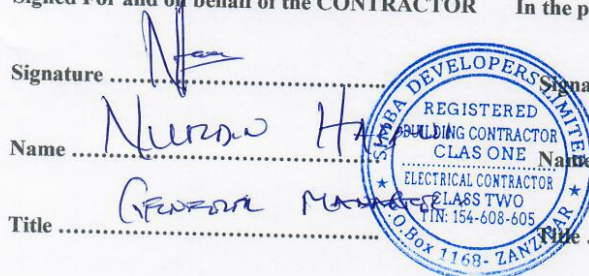 Signed For and on behalf of the CONTRACTOR In the p
Signature .......... Signa
Name .......... Name
General Manager
Title .......... Title .
SIMBA DEVELOPERS LIMITED
REGISTERED
BUILDING CONTRACTOR
CLAS ONE
ELECTRICAL CONTRACTOR
CLASS TWO
TIN: 154-608-605
P.O.Box 1168- ZANZIBAR